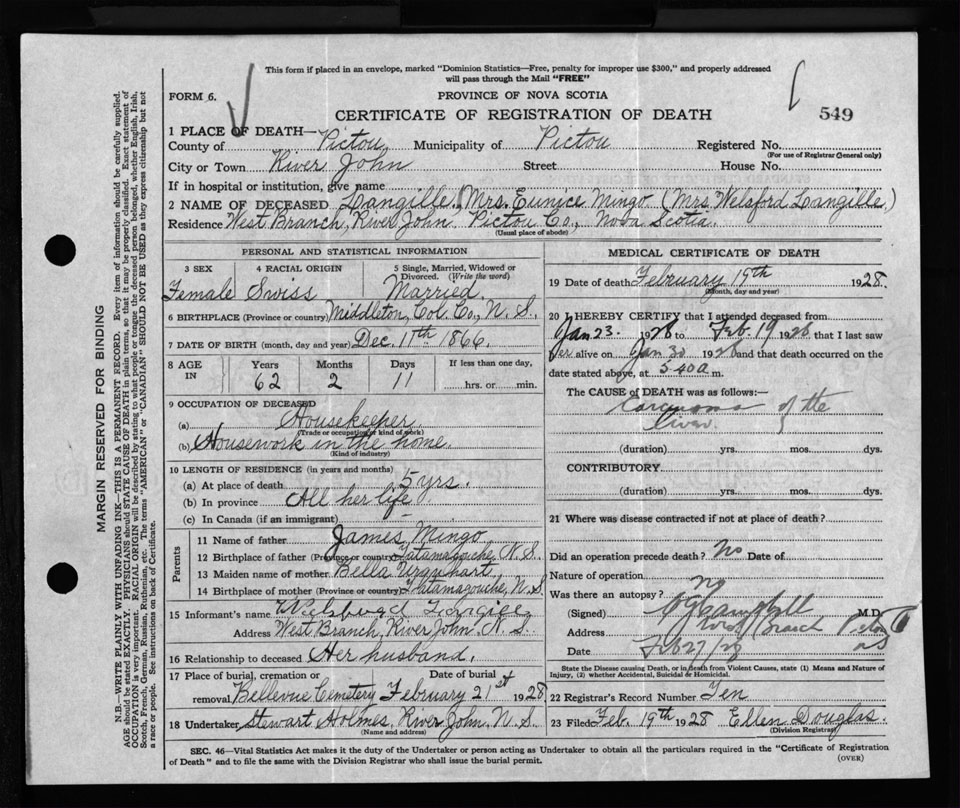 This form if placed in an envelope, marked "Dominion Statistics—Free, penalty for improper use $300," and properly addressed
will pass through the Mail "FREE"
FORM 6.
PROVINCE OF NOVA SCOTIA
CERTIFICATE OF REGISTRATION OF DEATH
549
1 PLACE OF DEATH—
County of Pictou, Municipality of Pictou Registered No.
(For use of Registrar General only)
City or Town River John Street House No.
If in hospital or institution, give name
2 NAME OF DECEASED Langille, Mrs. Eunice Mingo (Mrs. Welsford Langille.)
Residence West Branch, River John Pictou Co., Nova Scotia.
(Usual place of abode)
PERSONAL AND STATISTICAL INFORMATION
3 SEX 4 RACIAL ORIGIN 5 Single, Married, Widowed or
Divorced. (Write the word)
Female Swiss Married.
6 BIRTHPLACE (Province or country) Middleton, Col. Co., N. S.
7 DATE OF BIRTH (month, day and year) Dec. 11th 1866.
8 AGE IN Years Months Days If less than one day,
62 2 11 hrs. or min.
9 OCCUPATION OF DECEASED
(a) Housekeeper
(Trade or occupation or kind of work)
(b) Housework in the home.
(Kind of industry)
10 LENGTH OF RESIDENCE (in years and months)
(a) At place of death 5 yrs.
(b) In province All her life
(c) In Canada (if an immigrant) —
Parents
11 Name of father James Mingo
12 Birthplace of father (Province or country) Tatamagouche, N. S.
13 Maiden name of mother Bella Urquhart
14 Birthplace of mother (Province or country) Tatamagouche, N. S.
15 Informant's name
Address West Branch, River John N. S.
16 Relationship to deceased Her husband.
17 Place of burial, cremation or Date of burial
removal Bellevue Cemetery February 21st 1928
18 Undertaker Stewart Holmes, River John, N. S.
(Name and address)
MEDICAL CERTIFICATE OF DEATH
19 Date of death February 19th 1928.
(Month, day and year)
20 I HEREBY CERTIFY that I attended deceased from
Jan 23. 1928 to Feb. 19 1928 that I last saw
her alive on Jan 30 1928 and that death occurred on
date stated above, at 5 40 a m.
The CAUSE OF DEATH was as follows:—
Carcinoma of the
liver.
(duration) yrs. mos. dys.
CONTRIBUTORY
(duration) yrs. mos. dys.
21 Where was disease contracted if not at place of death?
Did an operation precede death? No Date of
Nature of operation
Was there an autopsy? No
(Signed) M.D.
Address West Branch Pictou
NS
Date Feb 27/28
State the Disease causing Death, or in death from Violent Causes, state (1) Means and Nature of
Injury, (2) whether Accidental, Suicidal or Homicidal.
22 Registrar's Record Number Ten
23 Filed Feb. 19th 1928 Ellen Douglas.
(Division Registrar)
SEC. 46—Vital Statistics Act makes it the duty of the Undertaker or person acting as Undertaker to obtain all the particulars required in the "Certificate of Registration
of Death" and to file the same with the Division Registrar who shall issue the burial permit.
(OVER)
MARGIN RESERVED FOR BINDING
N.B.—WRITE PLAINLY WITH UNFADING INK—THIS IS A PERMANENT RECORD. Every item of information should be carefully supplied.
AGE should be stated EXACTLY. PHYSICIANS should STATE CAUSE OF DEATH in plain terms, so that it may be properly classified. Exact statement of
OCCUPATION is very important. RACIAL ORIGIN will be described by stating to what people or tongue the deceased person belonged, whether English, Irish,
Scotch, French, German, Russian, Ruthenian, etc. The terms "AMERICAN" or "CANADIAN" SHOULD NOT BE USED as they express citizenship but not
a race or people. See instructions on back of Certificate.